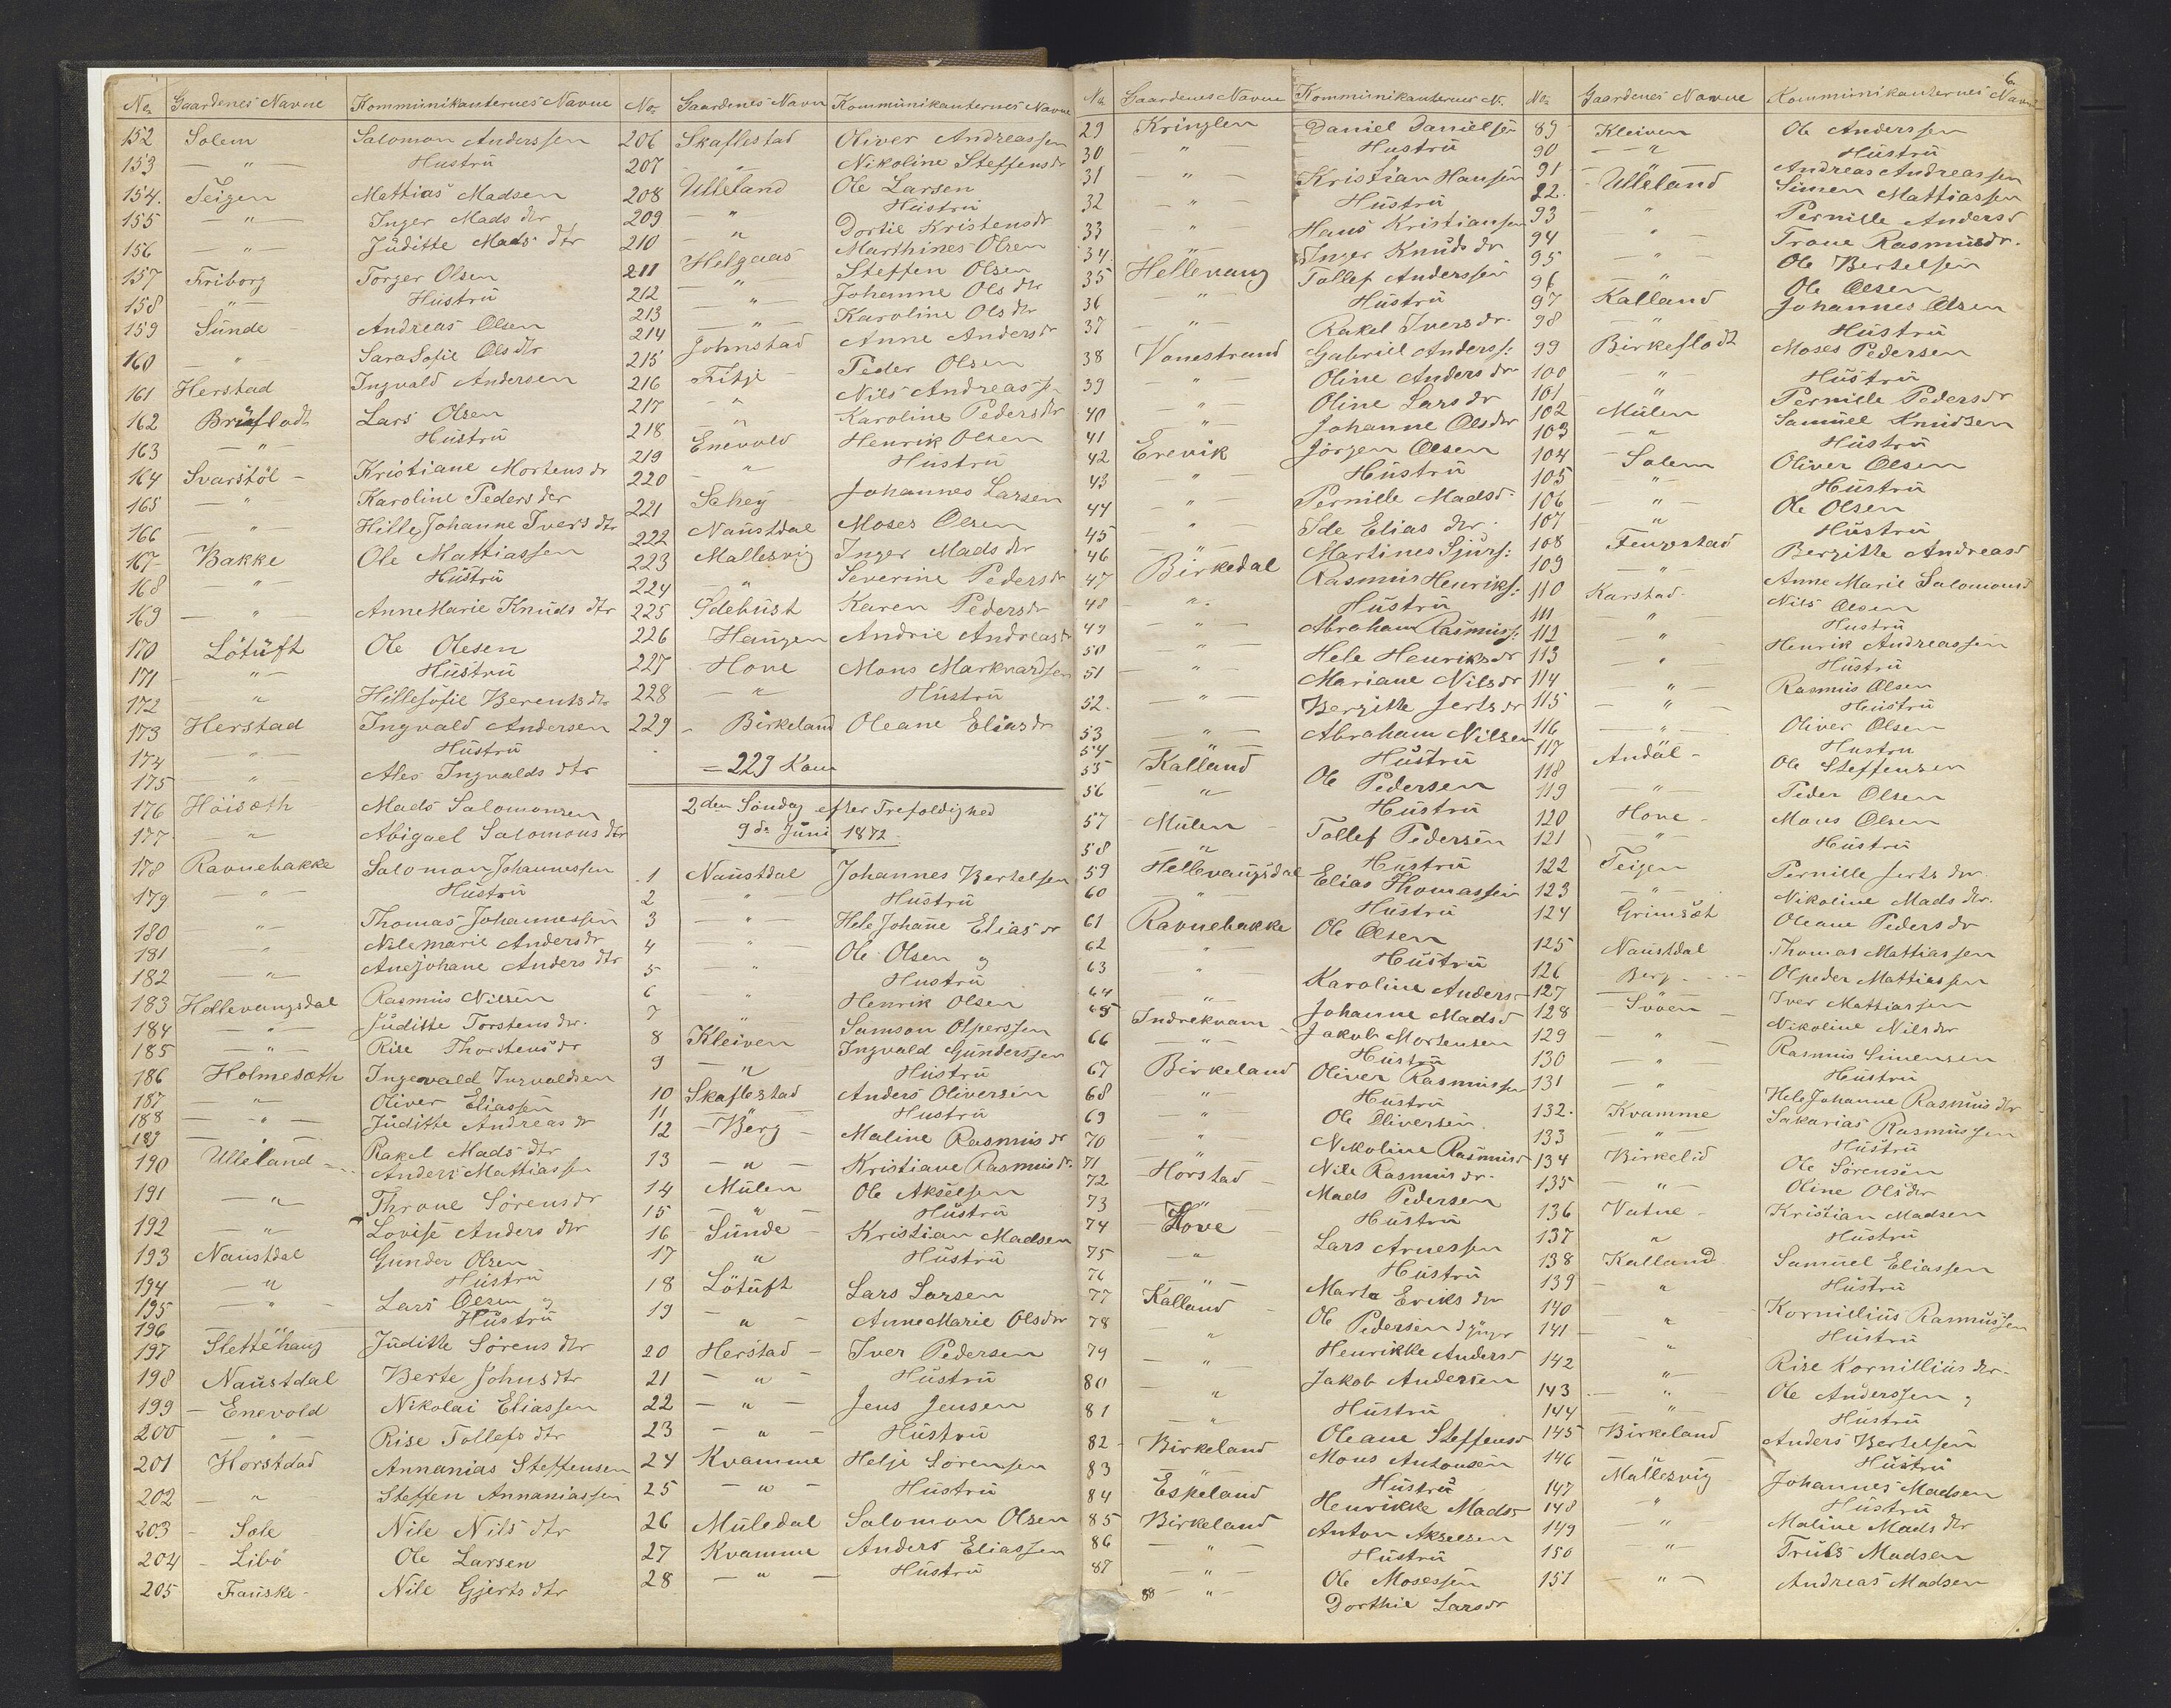 No. Gaardenes Navne Kommunikanternes Navne
152 Solem Salomon Anderssen
153 — " — Hustrü
154. Teigen Mattias Madsen
155 — " — Inger Mads dtr
156 — " — Jüditte Mads dtr
157 Friborg Torger Olsen
158 — " — Hüstrü
159 Sünde - Andreas Olsen
160 — " Sara Sofie Ols dtr
161 Herstad Ingvald Andersen
162 Brüflodt Lars Olsen
163 — " — Hüstrü
164 Svarstöl - Kristiane Mortens dr
165 — " Karoline Peders dtr
166 — " — Hille Johanne Ivers dtr
167 Bakke Ole Mattiassen
168 " Hüstrü
169 — " — Anne Marie Knuds dtr
170 Lötüft Ole Olesen
171 — " — Hüstrü
172 — " Hillesofie Berents dtr
173 Herstad Ingvald Andersen
174 — " — Hüstrü
175 — " — Ales Ingvalds dtr
176 Höisæth Mads Salomonsen
177 — " — Abigael Salomons dtr
178 Ravnebakke Salomon Johannessen
179 — " — Hüstrü
180 — " — Thomas Johannessen
181 — " — Nilemarie Anders dr
182 — " — Anejohane Anders dtr
183 Hellevangsdal Rasmus Nilsen
184 — " — Jüditte Torstens dtr.
185 — " — Rise Thorstens dr
186 Holmesæth Ingevald Ingvaldsen
187 — " — Oliver Eliassen
188 — " — Jüditte Andreas dr
189 — " — Rakel Mads dtr
190 Ulleland Anders Mattiassen
191 — " Throne Sörens dr
192 — " — Lovise Anders dtr
193 Naustdal Gunder Olsen
194 — " Hüstrü
195 — " — Lars Olsen og
196 Hüstrü
197 Slettehaug Jüditte Sörens dtr
198 Naüstdal Berte Johns dtr
199 — Enevold Nikolai Eliassen
200 — " — Rise Tollefs dtr
201 Horstdad Annanias Steffensen
202 — " Steffen Annaniassen
203 - Sole Nile Nils dtr
204 - Libö Ole Larsen
205 Fauske - Nile Gjerts dtr
No. Gaardenes Navn Kommunikanternes Navne
206 Skaflestad Oliver Andreassen
207 — " — Nikoline Steffensdr
208 Ulleland Ole Larsen
209 — " Hüstrü
210 — " Dortie Kristensdr
Marthines Olsen
211 Helgaas Steffen Olsen
212 — " Johanne Ols dtr
213 — " — Karoline Ols dtr
214 — " — Anne Anders dr
215 Johnstad Peder Olsen
216 Fitje - Nils Andreassn
217 — " Karoline Peders dr
218 — " Henrik Olsen
219 Enevold Hüstrü
220 — "
221 Sakey Johannes Larsen
222 Naüstdal Moses Olsen
223 Mallesvig Inger Mads dtr
224 — " Severine Peders dr
225 Ødehüst Karen Pedersdr
226 Haugen Andrie Andreas dr
227 Hove Mons Markvardsen
228 — " Hüstrü
229 - Birkeland Oleane Eliasdr
= 229 Kom
2den Söndag efter Trefoldighed
9de Jüni 1872.
1 Naüstdal Johannes Bertelsen
2 — " — Hüstrü
3 — " — Hele Johane Elias dr
4 — " — Ole Olsen og
5 " Hustrü
6 " Henrik Olsen
7 " Samson Olperssen
8 Kleiven Ingvald Gunderssen
9 — " Hüstrü
10 Skaflestad Anders Oliversen
11 — " — Hustrü
12 — Berg — Maline Rasmus dr
13 — " — Kristiane Rasmus dr.
14 Mülen Ole Akselsen
15 — " — Hüstrü
16 - Sünde - Kristian Madsen
17 " Hüstrü
18 Lötüft Lars Larsen
19 — " — Anne Marie Olsdtr
20 Herstad — Iver Pedersen
21 — " — Hüstrü
22 — " — Jens Jensen
23 — " — Hüstrü
24 Kvamme Helje Sorensen
25 — " — Hüstrü
26 Müledal Salomon Olsen
27 Kvamme Anders Eliassen
28 — " — Hüstrü
No. Gaardenes Navne Kommunikanternes N.
29 Kringlen Daniel Danielsen
30 " — Hustrü
31 — " — Kristian Hansen
32 — " — Hüstrü
33 — " — Hans Kristiansen
34. — " — Inger Knüds dr
35 Hellevang Tollef Anderssen
36 " Hüstrü
37 — " — Rakel Ivers dr.
38 Vonestrand Gabriel Anderss:
39 — " — Oline Anders dr
40 " — Oline Lars dr
41 " — Johanne Ols dtr
42 Erevik Jörgen Olsen
43 " — Hüstrü
44 — " — Pernille Madsd:
45 — " — Ide Elias dtr.
46 — " — Martines Sjurs:
47 Birkedal Rasmus Henriks:
48 — " — Hüstrü
49 — " — Abraham Rasmuss:
50 " — Hele Henriksdr
51 — " — Mariane Nilsdr
52. — " — Bergitte Jertsdr
53 — " — Abraham Nilsen
54 — " — Hüstrü
55 Kalland Ole Pedersen
56 — " Hüstrü
57 Mülen - Tollef Pedersen
58 — " Hüstrü
59 Hellevangsdal Elias Thomassen
60 " Hüstrü
61 Ravnebakke Ole Olsen
62 " Hüstrü
63 " Karoline Anders
64 — " — Johanne Madsd
65 Indrekvam - Jakob Mortensen
66 — " — Hüstrü
67 Birkeland Oliver Rasmussen
68 — " — Hüstrü
69 — " Ole Oliversen.
70 — " Nikoline Rasmusd
71 — " — Nile Rasmus dr.
72 Horstad - Mads Pedersen
73 — " — Hüstrü
74 Hove Lars Arnessen
75 — " Hüstrü
76 — " — Marta Eriks dtr
77 Kalland - Ole Pedersen d yngr
78 — " Henrikke Andersd
79 — " — Jakob Andersen
80 — " Hüstrü
81 — " Oleane Steffensd
82 - Birkeland Mons Antonsen
83 — " — Hüstrü
84 Espeland Henrikke Madsd
85 Birkeland Anton Akselsen
86 — " — Hüstrü
87 — " — Ole Mosessen
88 " Dorthie Larsdr
6.
No. Gaardenes Navne Kommunikanternes Navne
89 Kleiven Ole Anderssen
90 — " Hüstrü
91 — " — Andreas Andreassen
22. - Ulleland Simen Mattiassen
93 — " Pernille Andersd
94 — " — Trone Rasmusdr.
95 — " — Ole Bertelsen
96 — " — Ole Olsen
97 Kalland Johannes Olsen
98 — " — Hüstrü
99 Birkeflodt Moses Pedersen
100 — " — Hüstrü
101 — " — Pernille Pedersdr
102 Mülen Samüel Knudsen
103 — " Hüstrü
104 - Solem Oliver Olsen
105 — " — Hüstrü
106 — " — Ole Olsen
107 — " Hüstrü
108 Fengestad Bergitte Andreasd
109 — " — Anne Marie Salomonsd
110 Karstad Nils Olsen
111 — " — Hustrü
112 — " Henrik Andreassen
113 — " Hüstrü
114 — " — Rasmus Olsen
115 — " — Hüstrü
116 — " — Oliver Olsen
117 Andäl - Hustru
118 Ole Steffensen
119 — " — Peder Olsen
120 Hove - Mons Olsen
121 — " — Hüstrü
122 Teigen Pernille Jerts dtr.
123 — " — Nikoline Mads dtr.
124 Grimsæt Oleane Peders dr
125 Naüstdal Thomas Mattiassen
126 Berg - Olpeder Mattiassen
127 Iver Mattiassen
128 Svoen - Nikoline Nilsdtr
129 — " — Rasmus Simensen
130 — " Hüstrü
131 — " — Hele Johanne Rasmus dtr
132. Kvamme Sakarias Rasmussen
133 — " — Hüstrü
134 Birkelid Ole Sörensen
135 — " — Oline Olsdtr
136 Vatne - Kristian Madsen
137 " Hüstrü
138 Kalland Samüel Eliassen
139 — " Hüstrü
140 " Kornilliüs Rasmussen
141 — " Hüstrü
142 — " — Rise Kornilliüs dtr.
143 — " — Ole Anderssen og
144 — " — Hüstrü
145 Birkeland Anders Bertelsen
146 Hüstrü
147 Mallesvig Johannes Madsen
148 — " Hüstrü
149 — " Maline Mads dtr
150 — " — Trüls Madsen
151 — " — Andreas Madsen